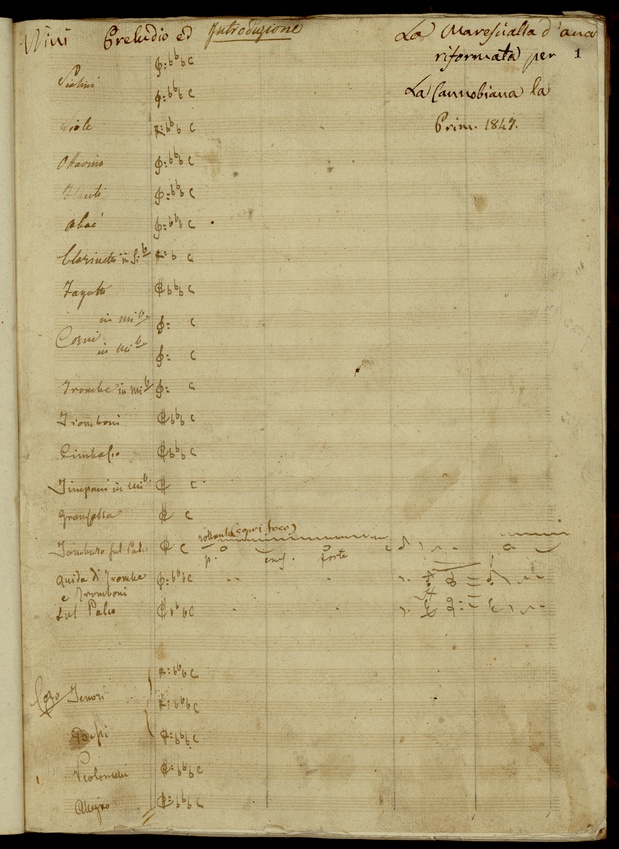 Nini Preludio ed Introduzione
La Marescialla d'ancre
riformata per 1
La Cannobiana la
Prim. 1847.
Violini
Viole
Ottavino
Flauti
Oboè
Clarinetti in Sib
Fagotti
in mib
Corni
in mib
Trombe in Mib
Tromboni
Cimbasso
Timpani in mib
Grancassa
rollando
Tamburo sul Palco
p. cresc. forte
Guida di Trombe
e Tromboni
sul Palco
Coro Tenori
Bassi
Violoncelli
Allegro